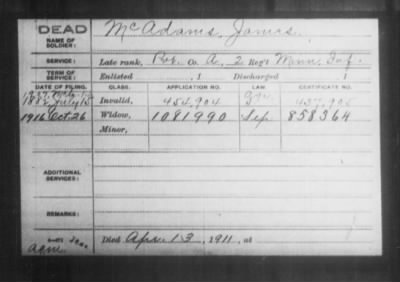 DEAD
NAME OF SOLDIER: McAdams, James.
SERVICE: Late rank, Co. A, 2 Reg't Minn. Inf.
TERM OF SERVICE: Enlisted , 1 Discharged , 1
DATE OF FILING. CLASS. APPLICATION NO. LAW. CERTIFICATE NO.
1882 July 15 Invalid, 454,904
1916 Oct. 26 Widow, 1081990 Sep. 858364
Minor,
ADDITIONAL SERVICES:
REMARKS:
Died Apr. 13, 1911, at